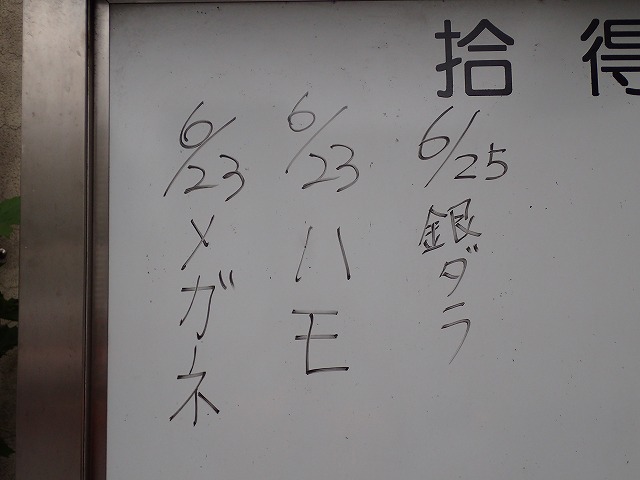 拾得
6/25
銀ダラ
6/23
ハモ
6/23
メガネ